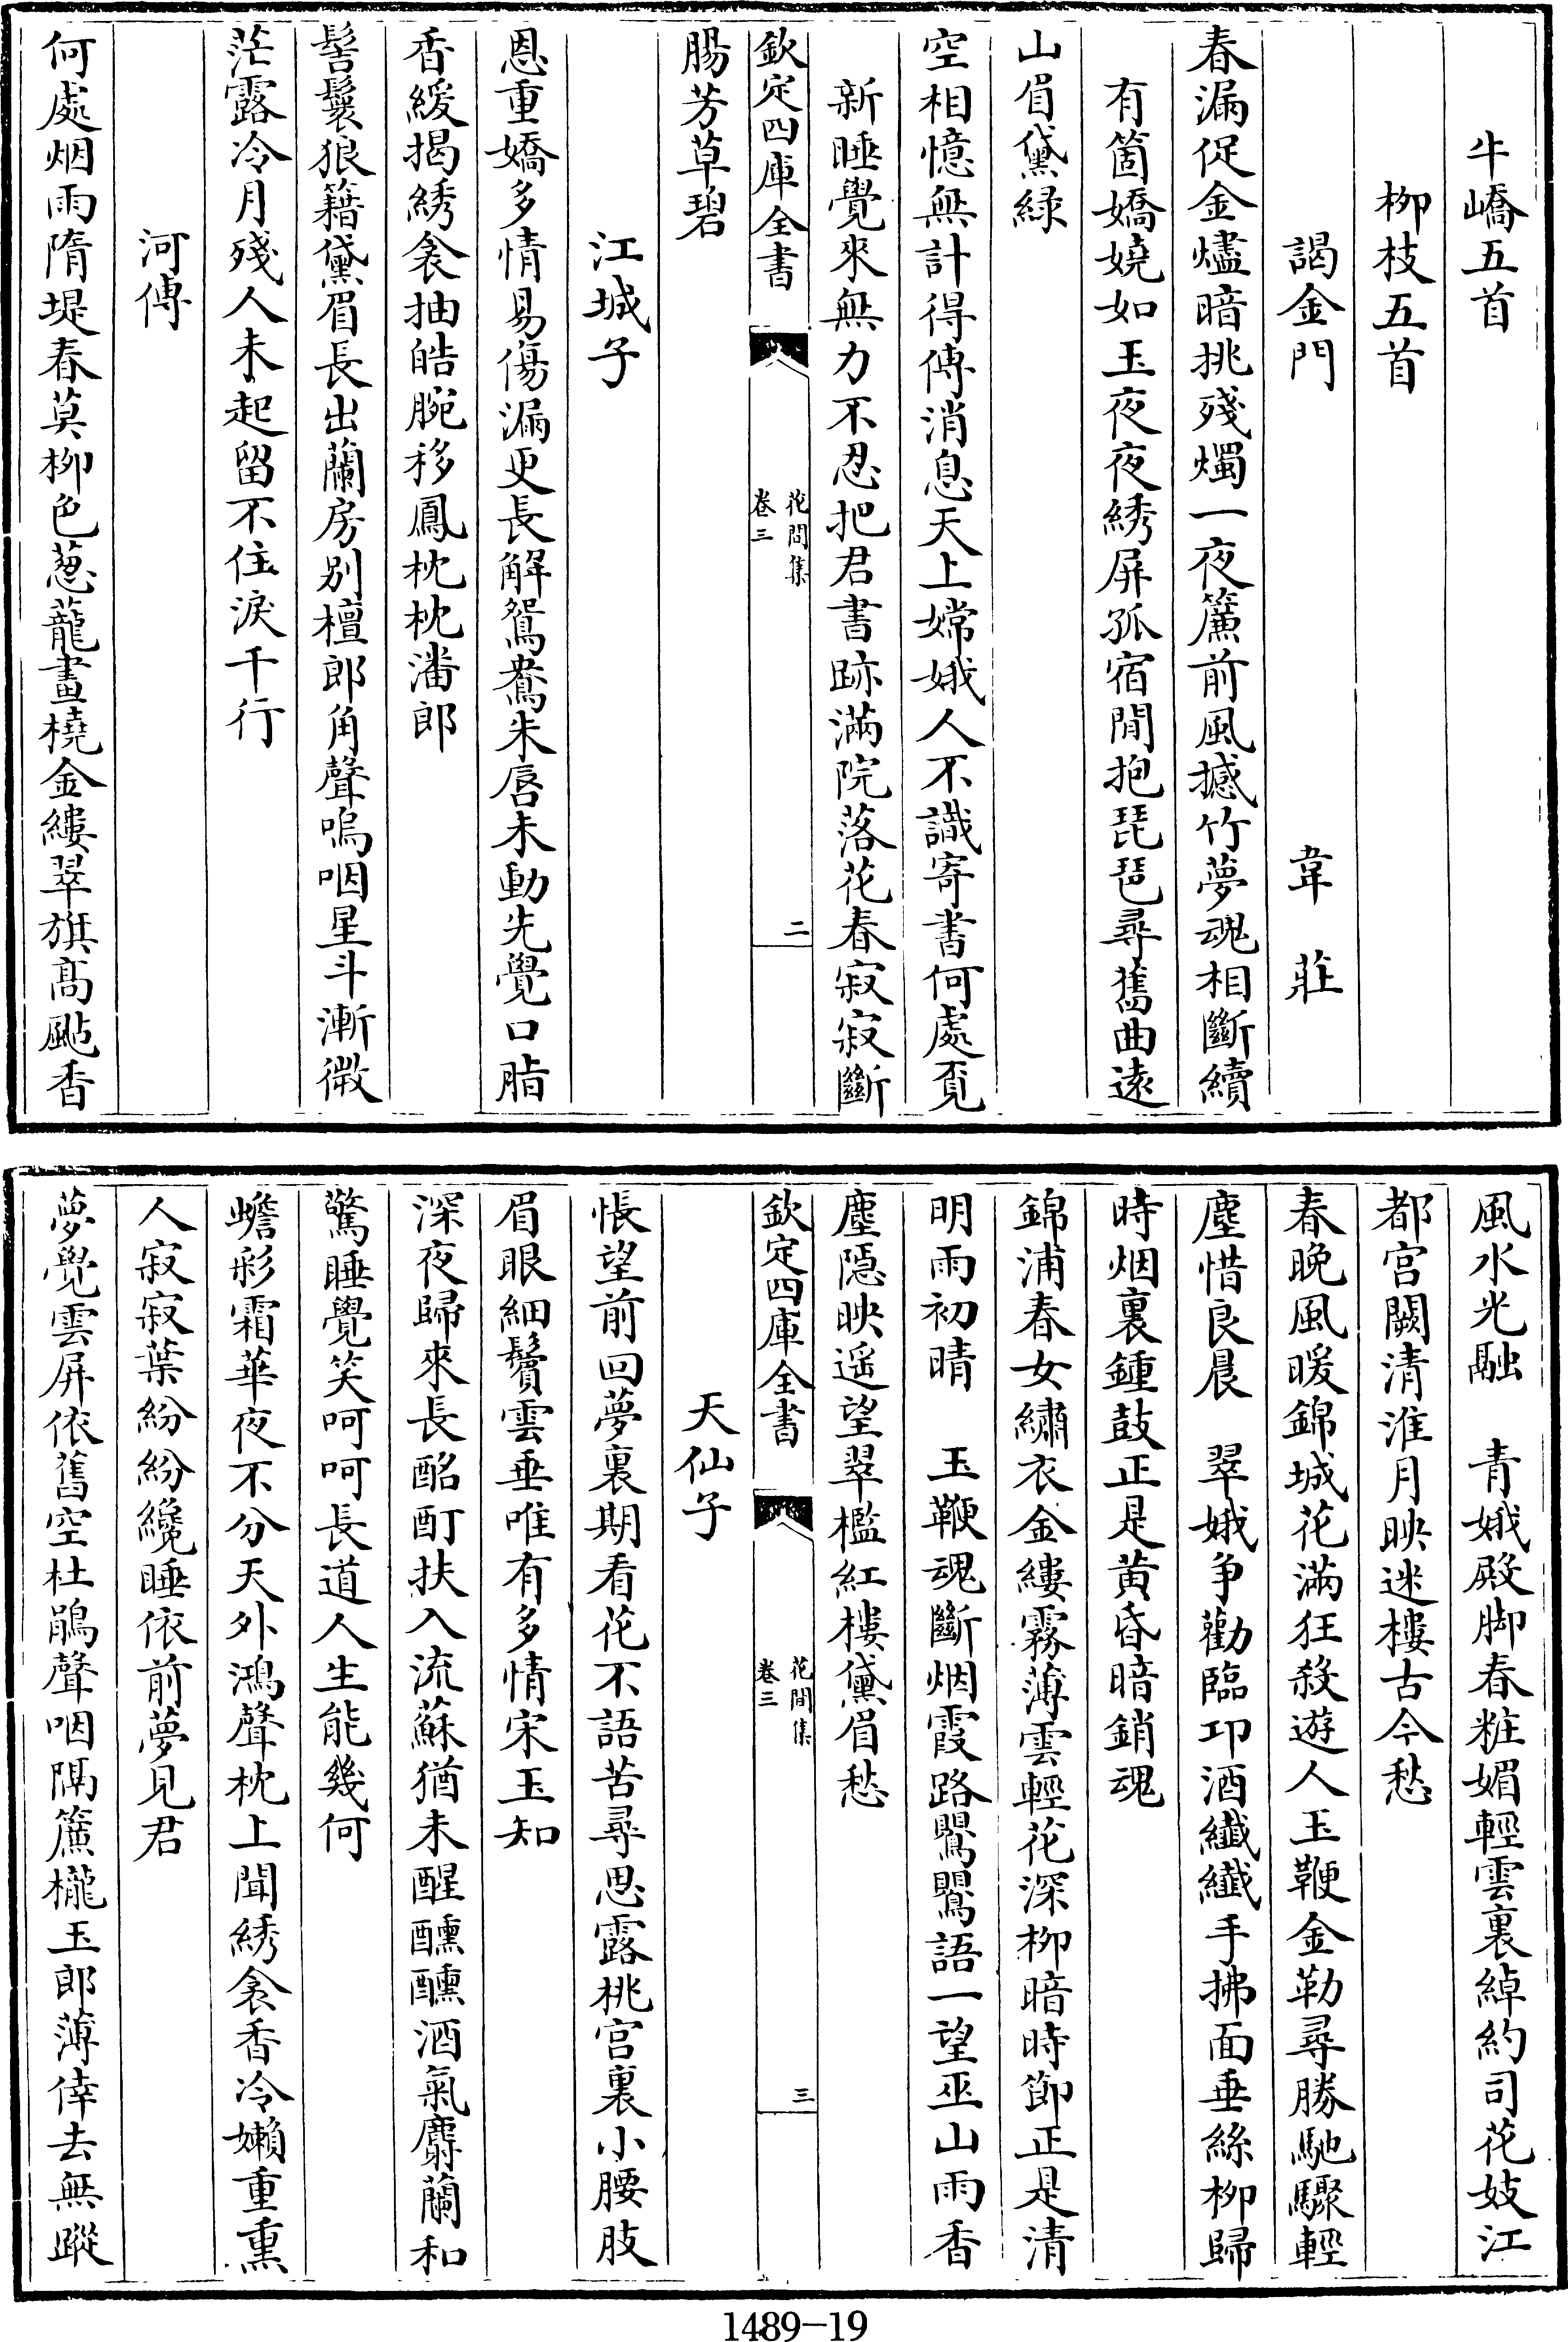 牛嶠五首
柳枝五首
謁金門　韋莊
春漏促金燼暗挑殘燭一夜簾前風撼竹夢魂相斷續
有箇嬌嬈如玉夜夜綉屏孤宿閒抱琵琶尋舊曲遠
山眉黛緑
空相憶無計得傳消息天上嫦娥人不識寄書何處覓
新睡覺來無力不忍把君書跡滿院落花春寂寂斷
欽定四庫全書　花間集卷三　二
腸芳草碧
江城子
恩重嬌多情易傷漏更長解鴛鴦朱唇未動先覺口脂
香緩揭綉衾抽皓腕移鳳枕枕潘郎
髻鬟狼籍黛眉長出蘭房别檀郎角聲嗚咽星斗漸微
茫露冷月殘人未起留不住淚千行
河傳
何處烟雨隋堤春莫柳色蔥蘢畫橈金縷翠旗髙颭香
風水光融　青娥殿脚春粧媚輕雲裏綽約司花妓江
都宫闕清淮月映迷樓古今愁
春晚風暖錦城花滿狂殺遊人玉鞭金勒尋勝馳驟輕
塵惜良晨　翠娥争勸臨邛酒纖纖手拂面垂絲柳歸
時烟裏鍾鼓正是黄昏暗銷魂
錦浦春女繡衣金縷霧薄雲輕花深柳暗時節正是清
明雨初晴　玉鞭魂斷烟霞路鸎鸎語一望巫山雨香
塵隠映遥望翠檻紅樓黛眉愁
欽定四庫全書　花間集卷三　三
天仙子
悵望前回夢裏期看花不語苦尋思露桃宫裏小腰肢
眉眼細鬢雲垂唯有多情宋玉知
深夜歸來長酩酊扶入流蘇猶未醒醺醺酒氣麝蘭和
驚睡覺笑呵呵長道人生能幾何
蟾彩霜華夜不分天外鴻聲枕上聞綉衾香冷嬾重熏
人寂寂葉紛紛纔睡依前夢見君
夢覺雲屏依舊空杜鵑聲咽隔簾櫳玉郎薄倖去無蹤
1489-19